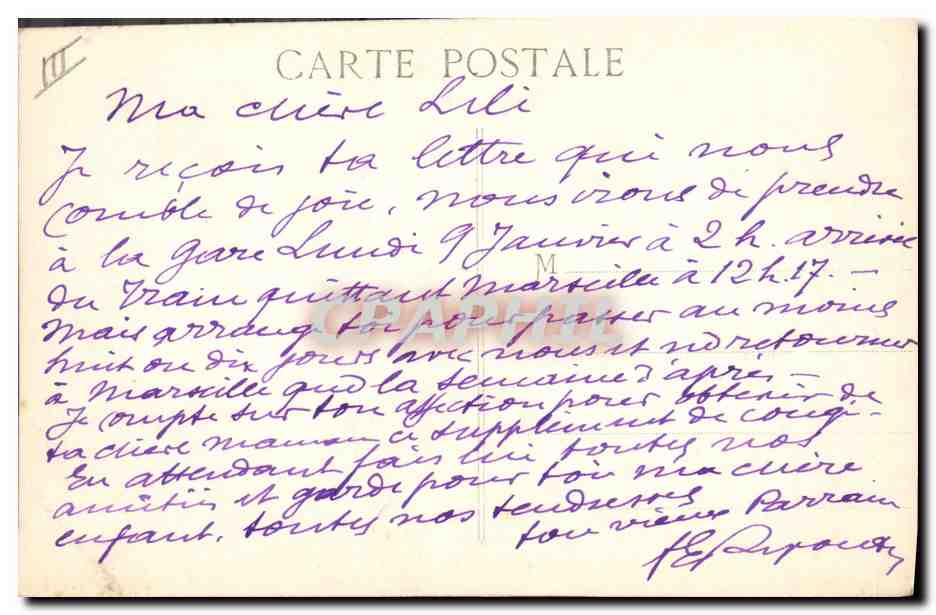 III
CARTE POSTALE
Ma chère Lili
Je reçois ta lettre qui nous
comble de joie, nous irons di prendre
à la gare Lundi 9 Janvier à 2 h. arrivée
M
du Train quittant Marseille à 12 h. 17. —
CPAPHIL
Mais arrange toi pour passer au moins
huit ou dix jours avec nous et ne retourner
à Marseille que la semaine d'après —
Je compte sur ton affection pour obtenir de
ta chère maman ce supplément de congé -
En attendant fais lui toutes nos
amitiés et garde pour toi ma chère
enfant, toutes nos tendresses
ton vieux Parrain